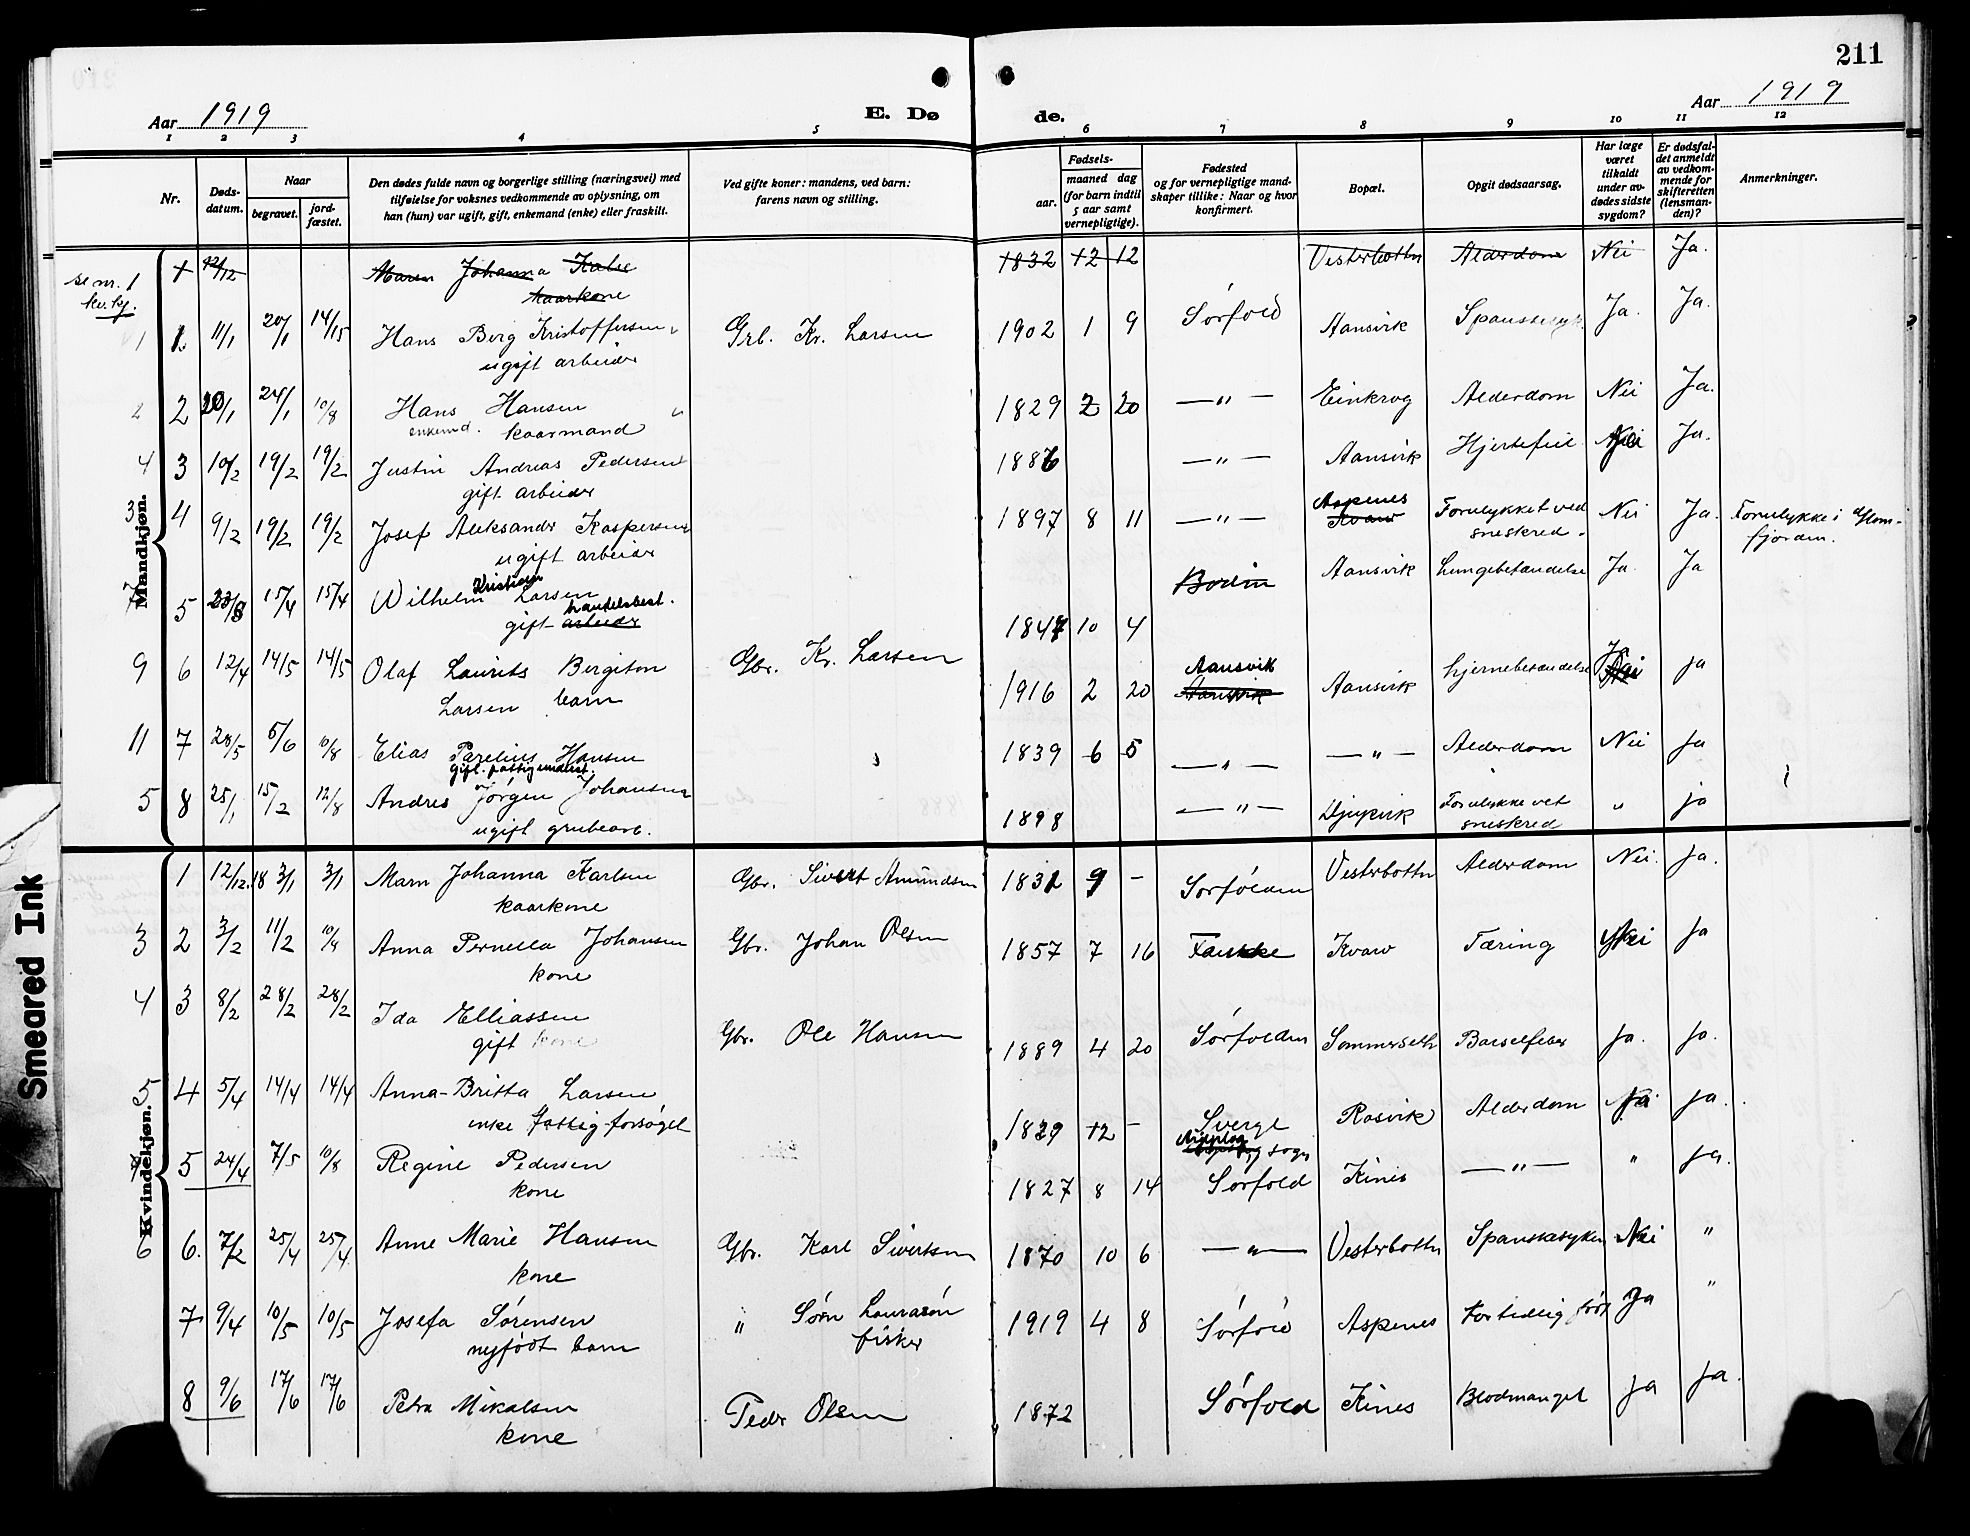 211
Aar 1919
E. Dø
de.
Aar 1919
1 2 3 4 5 6 7 8 9 10 11 12
Nr.
Døds-
datum.
Naar
begravet.
jord-
fæstet.
Den dødes fulde navn og borgerlige stilling (næringsvei) med
tilføielse for voksnes vedkommende av oplysning, om
han (hun) var ugift, gift, enkemand (enke) eller fraskilt.
Ved gifte koner: mandens, ved barn:
farens navn og stilling.
Fødsels-
aar.
maaned dag
(for barn indtil
5 aar samt
vernepligtige).
Fødested
og for vernepligtige mand-
skaper tillike: Naar og hvor
konfirmert.
Bopæl.
Opgit dødsaarsag.
Har læge
været
tilkaldt
under av-
dødes sidste
sygdom?
Er dødsfal-
det anmeldt
av vedkom-
mende for
skifteretten
(lensman-
den)?
Anmerkninger.
se nr. 1
kv.kj.
1 12/12 Maren Johanna 1832 12 12 Vesterbottn Alderdom Nei Ja.
kaarkone
1 1 11/1 20/1 14/15 Hans Berg Kristoffersen Grb. Kr. Larsen 1902 1 9 Sørfold Aansvik Ja. Ja.
ugift arbeider
2 2 20/1 24/1 10/8 Hans Hansen 1829 2 20 —"— Einkrog Alderdom Nei Ja.
enkemd. kaarmand
4 3 10/2 19/2 19/2 Justin Andreas Pedersen 1886 —"— Aansvik Hjertefeil Ja.
gift arbeider
3 4 9/2 19/2 19/2 Josef Aleksander Kaspersen 1897 8 11 —"— Aspenes Kvarv Forulykket ved Nei Ja. Forulykke i Glom-
ugift arbeider sneskred. fjorden.
Mandkjøn.
7 5 23/3 15/4 15/4 Wilhelm Kristian Larsen 1847 10 4 Bodin Aansvik Lungebetændelse Ja. Ja
gift arbeider handelsbest.
9 6 12/4 14/5 14/5 Olaf Laurits Bergiton Gbr. Kr. Larsen 1916 2 20 Aansvik Aansvik Aansvik hjernebetændelse Ja Nei ja
Larsen barn
11 7 28/5 5/6 10/8 Elias Parelius Hansen 1839 6 5 —"— —"— Alderdom Nei ja
gift. fattigunderst.
5 8 25/1 15/2 12/8 Andres Jørgen Johansen 1898 —"— Djupvik Forulykke vet " ja
ugift grubearb. sneskred
1 12/12.18 3/1 3/1 Marn Johanna Karlsen Gbr. Sivert Amundsen 1831 9 - Sørfolden Vesterbottn Alderdom Nei. ja.
kaarkone
3 2 3/2 11/2 10/9 Anna Pernella Johansen Gbr. Johan Olsen 1857 7 16 Fauske Kvarv Tæring ja
kone
4 3 8/2 28/2 28/2 Ida Elliassen Gbr. Ole Hansen 1889 4 20 Sørfolden Sommerseth Barselfeber ja. ja.
gift kone
5 4 5/4 14/4 14/4 Anna-Britta Larsen 1829 12 - Sverge Rosvik Alderdom ja.
enke fattig-forsøget sogn
Kvindekjøn.
7 5 24/4 7/5 10/8 Regine Pedersen 1827 8 14 Sørfold Kines —"— " ja.
kone
6 6. 7/2 25/4 25/4 Anne Marie Hansen Gbr. Karl Sivertsen 1870 10 6 —"— Vesterbottn Spanskesyken Nei "
kone
7 9/4 10/5 10/5 Josefa Sørensen " Søren 1919 4 8 Sørfold Aspenes For tidlig Ja "
nyfødt barn fisker
8 9/6 17/6 17/6 Petra Mikalsen Peder Olsen 1872 Sørfold Kines Blodmangel ja ja.
kone
Smeared Ink